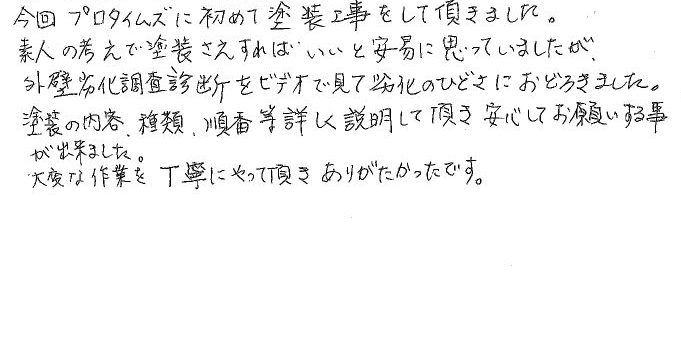 今回 プロタイムズに初めて塗装工事をして頂きました。
素人の考えで塗装さえすればいいと安易に思っていましたが、
外壁劣化調査診断をビデオで見て劣化のひどさにおどろきました。
塗装の内容、種類、順番等詳しく説明して頂き安心してお願いする事
が出来ました。
大変な作業を丁寧にやって頂きありがたかったです。